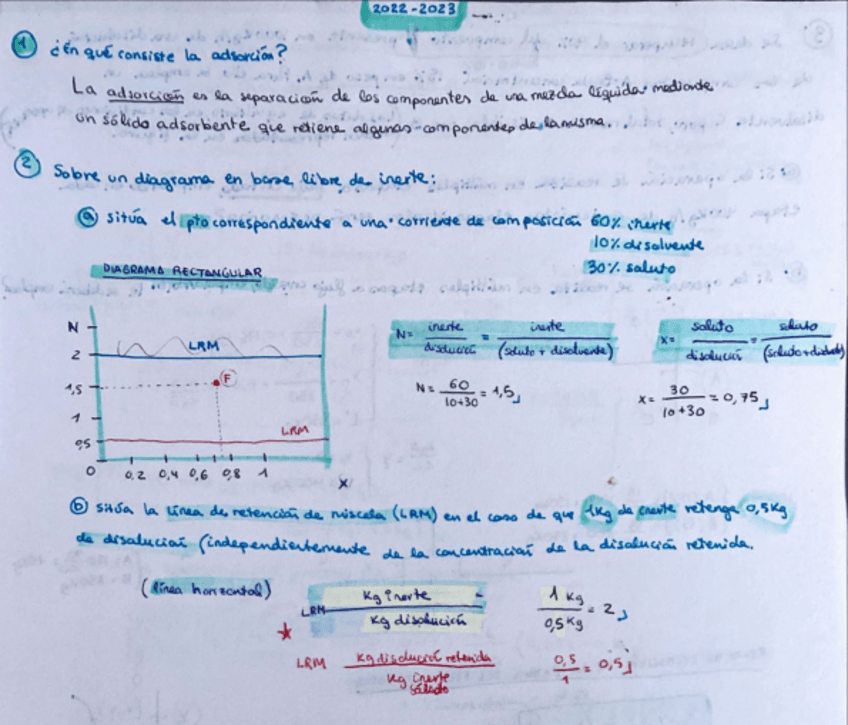 2022-2023
1 ¿En qué consiste la adsorción?
La adsorción es la separación de los componentes de una mezcla líquida mediante
un sólido adsorbente que retiene algunos componentes de la misma.
2 Sobre un diagrama en base libre de inerte:
a situá el pto correspondiente a una corriente de composición 60% inerte
10% disolvente
30% soluto
DIAGRAMA RECTANGULAR
N
2
LRM
1,5
F
1
LRM
0,5
0
0,2 0,4 0,6 0,8 1
x
N = inerte / disolución = inerte / (soluto + disolvente)
N = 60 / 10+30 = 1,5
x = soluto / disolución = soluto / (soluto+disolvte)
x = 30 / 10+30 = 0,75
b situa la línea de retención de miscela (LRM) en el caso de que 1Kg de inerte retenga 0,5Kg
de disolución (independientemente de la concentración de la disolución retenida.
(línea horizontal)
LRM Kg inerte / Kg disolución = 1 Kg / 0,5 Kg = 2
LRM Kg disolución retenida / Kg inerte sólido 0,5 / 1 = 0,5